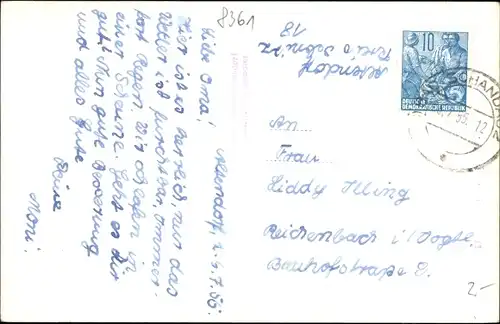 8361
Altendorf, d. 4.7.56.
Liebe Oma!
Hier ist es herrlich, nur das
Wetter ist furchtbar, immer-
fort Regen. Wir schlafen in
einer Scheune. Geht es Dir
gut? Nun gute Besserung
und alles Gute
Deine
Moni.
Altendorf
Kreis Sebnitz
18
10
DEUTSCHE
DEMOKRATISCHE REPUBLIK
An
Frau
Liddy Illing
Reichenbach i/Vogtl.
Bahnhofstraße 8.
2-